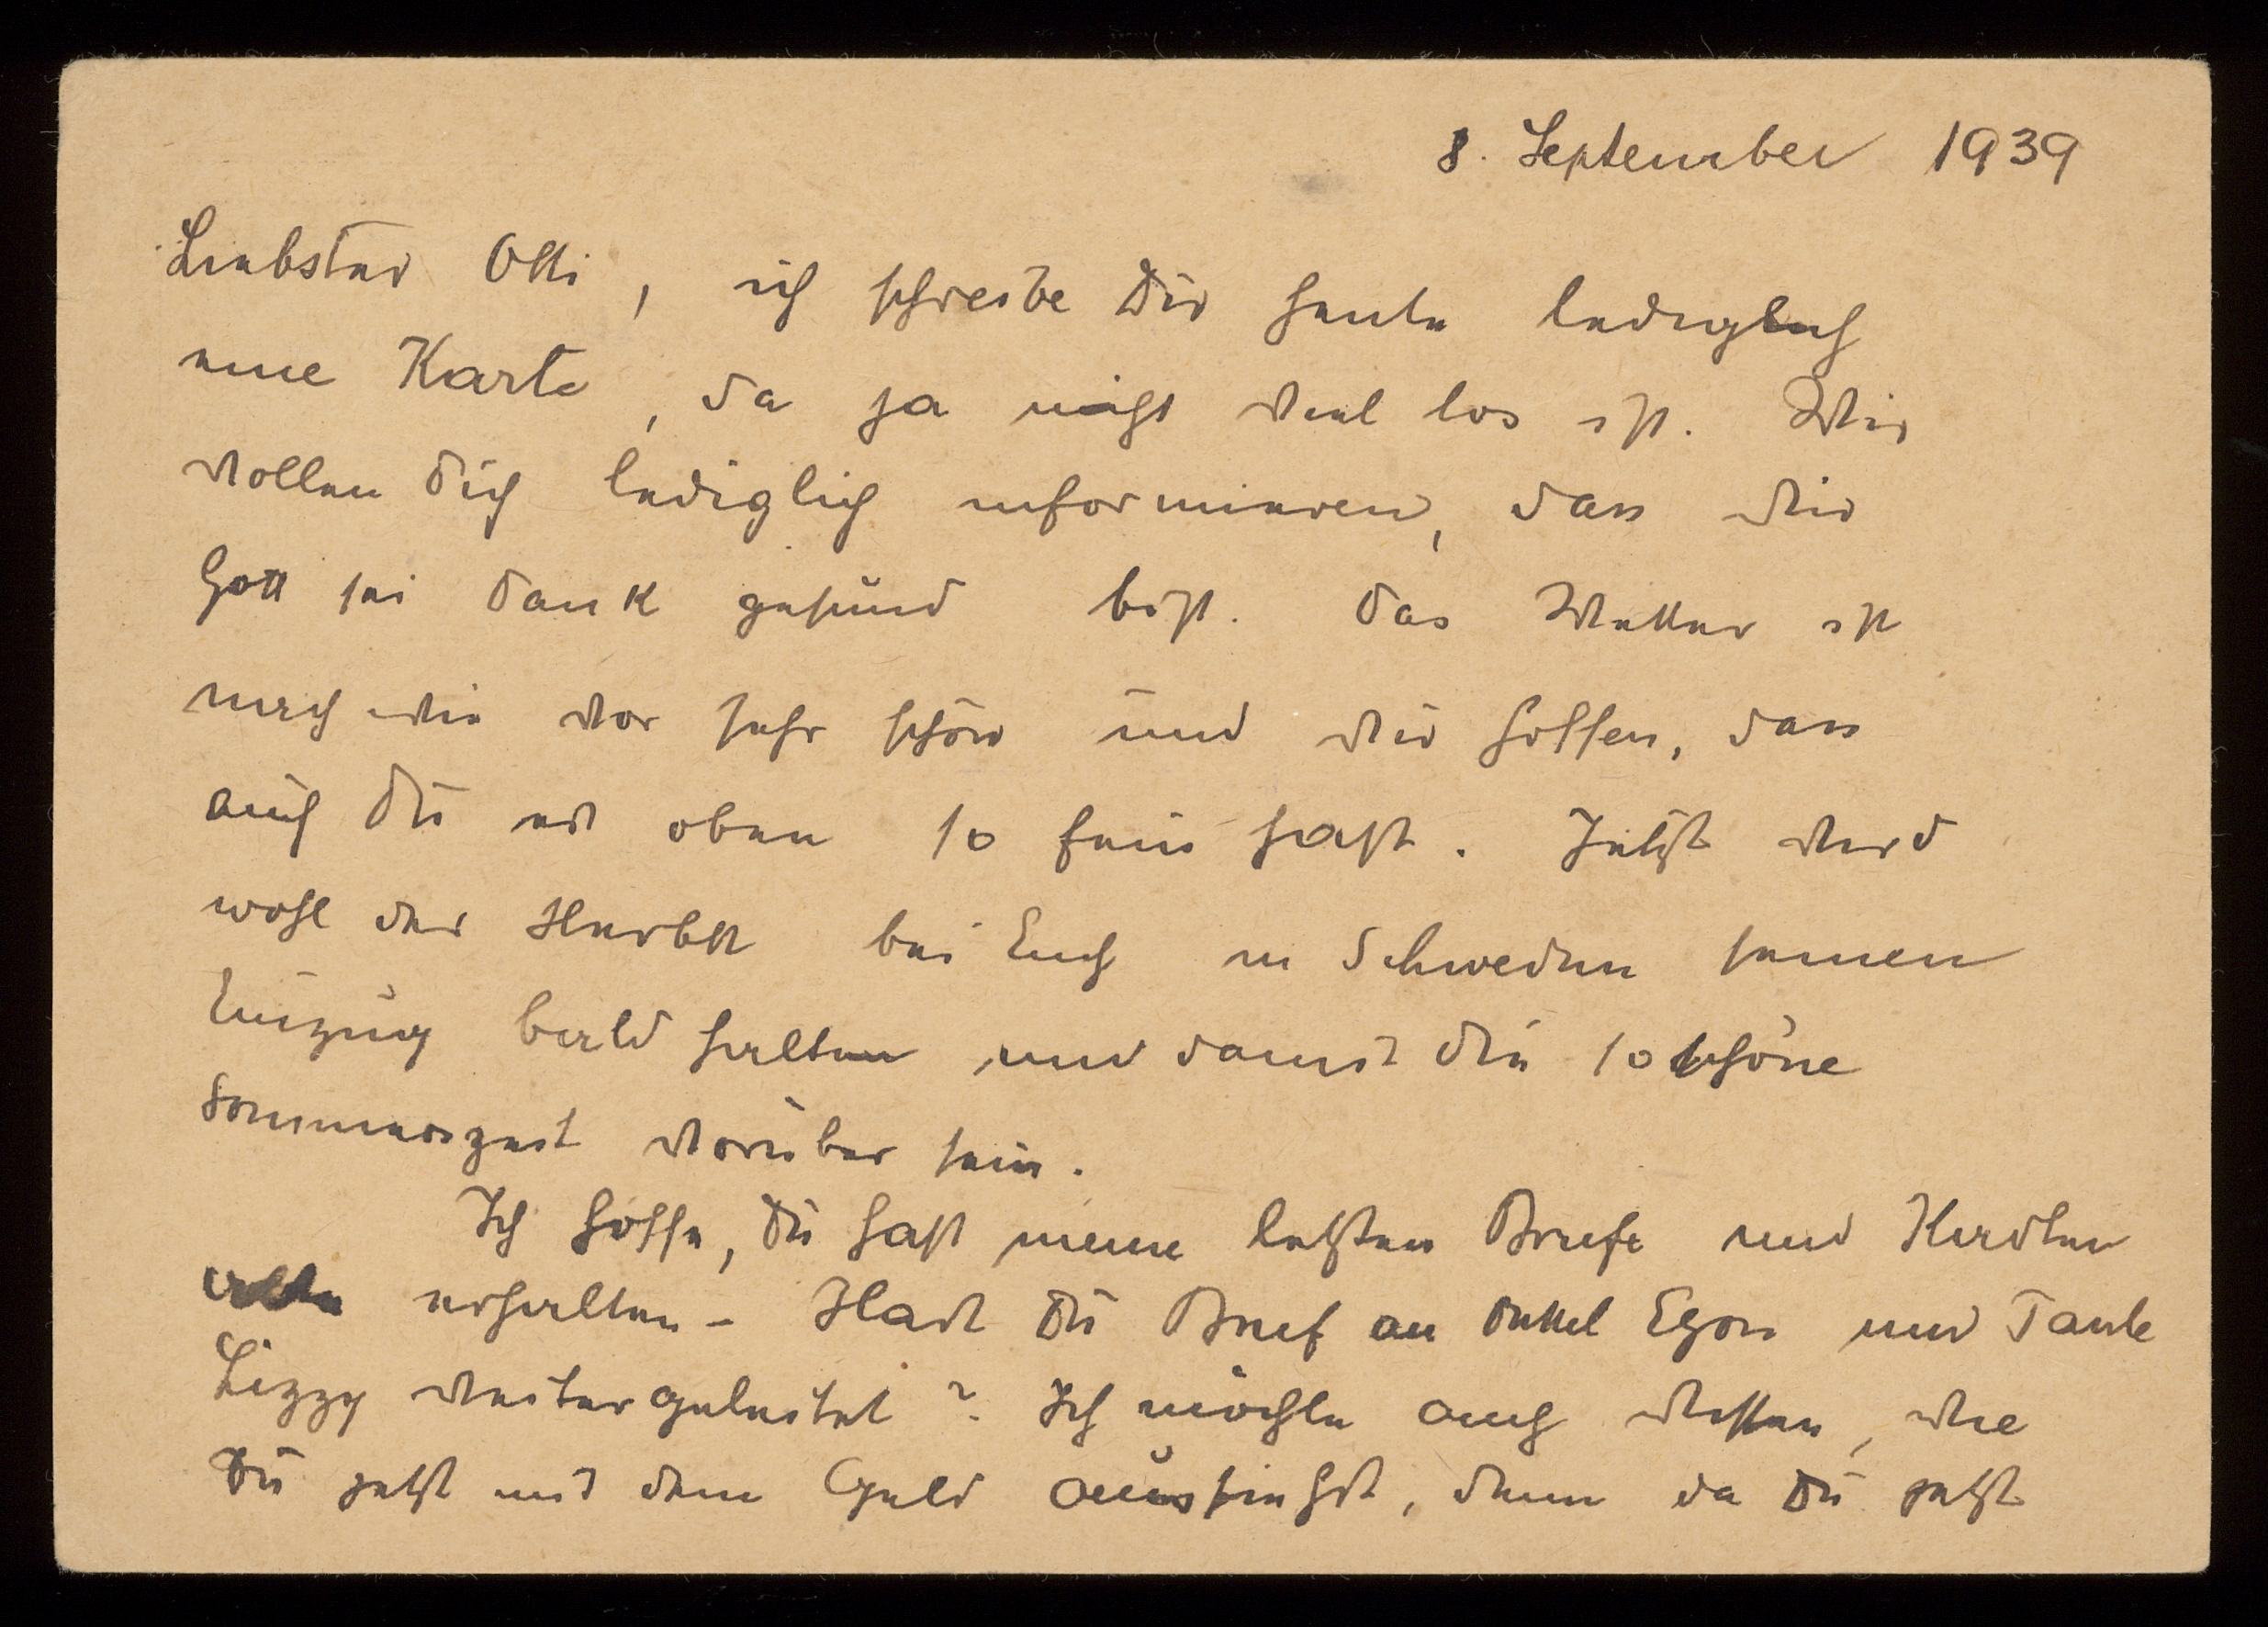 8. September 1939
Liebster Otti, ich schreibe Dir heute lediglich
eine Karte, da ja nicht viel los ist. Wir
wollen Dich lediglich informieren, dass wir
Gott sei Dank gesund bist. Das Wetter ist
nach wie vor sehr schön und wir hoffen, dass
auch Du es oben so fein hast. Jetzt wird
wohl der Herbst bei Euch in Schweden seinen
Einzug bald halten und damit die so schöne
Sommerszeit vorüber sein.
Ich hoffe, Du hast meine letzten Briefe und Karten
alle erhalten - Hast Du Brief an Onkel Egon und Tante
Lizzy weitergeleitet? Ich möchte auch wissen, wie
Du jetzt mit dem Geld aussiehst, denn da Du jetzt